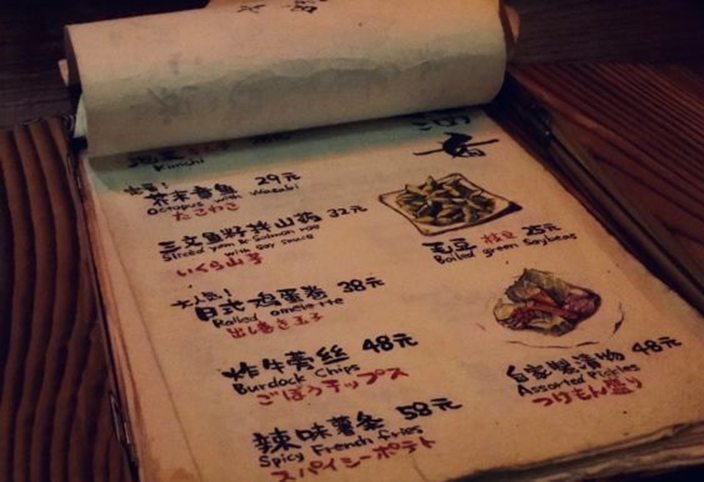 Kimchi
芥末章鱼 29元
Octopus with Wasabi
たこわさ
三文鱼籽拌山药 32元
Sliced yam & Salmon roe
with soy sauce
いくら山芋
大人気!
日式鸡蛋卷 38元
Rolled omelette
出し巻き玉子
炸牛蒡丝 48元
Burdock Chips
ごぼうチップス
辣味薯条 58元
Spicy French fries
スパイシーポテト
毛豆 枝豆 25元
Boiled green Soybeans
自家製漬物 48元
Assorted Pickles
つけもん盛り